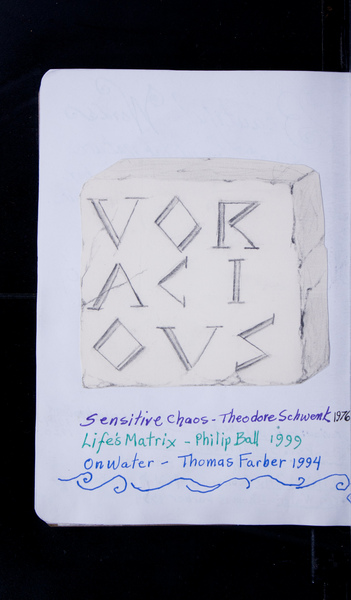 VOR
ACI
OUS
Sensitive Chaos - Theodore Schwenk 1976
Life's Matrix - Philip Ball 1999
On Water - Thomas Farber 1994